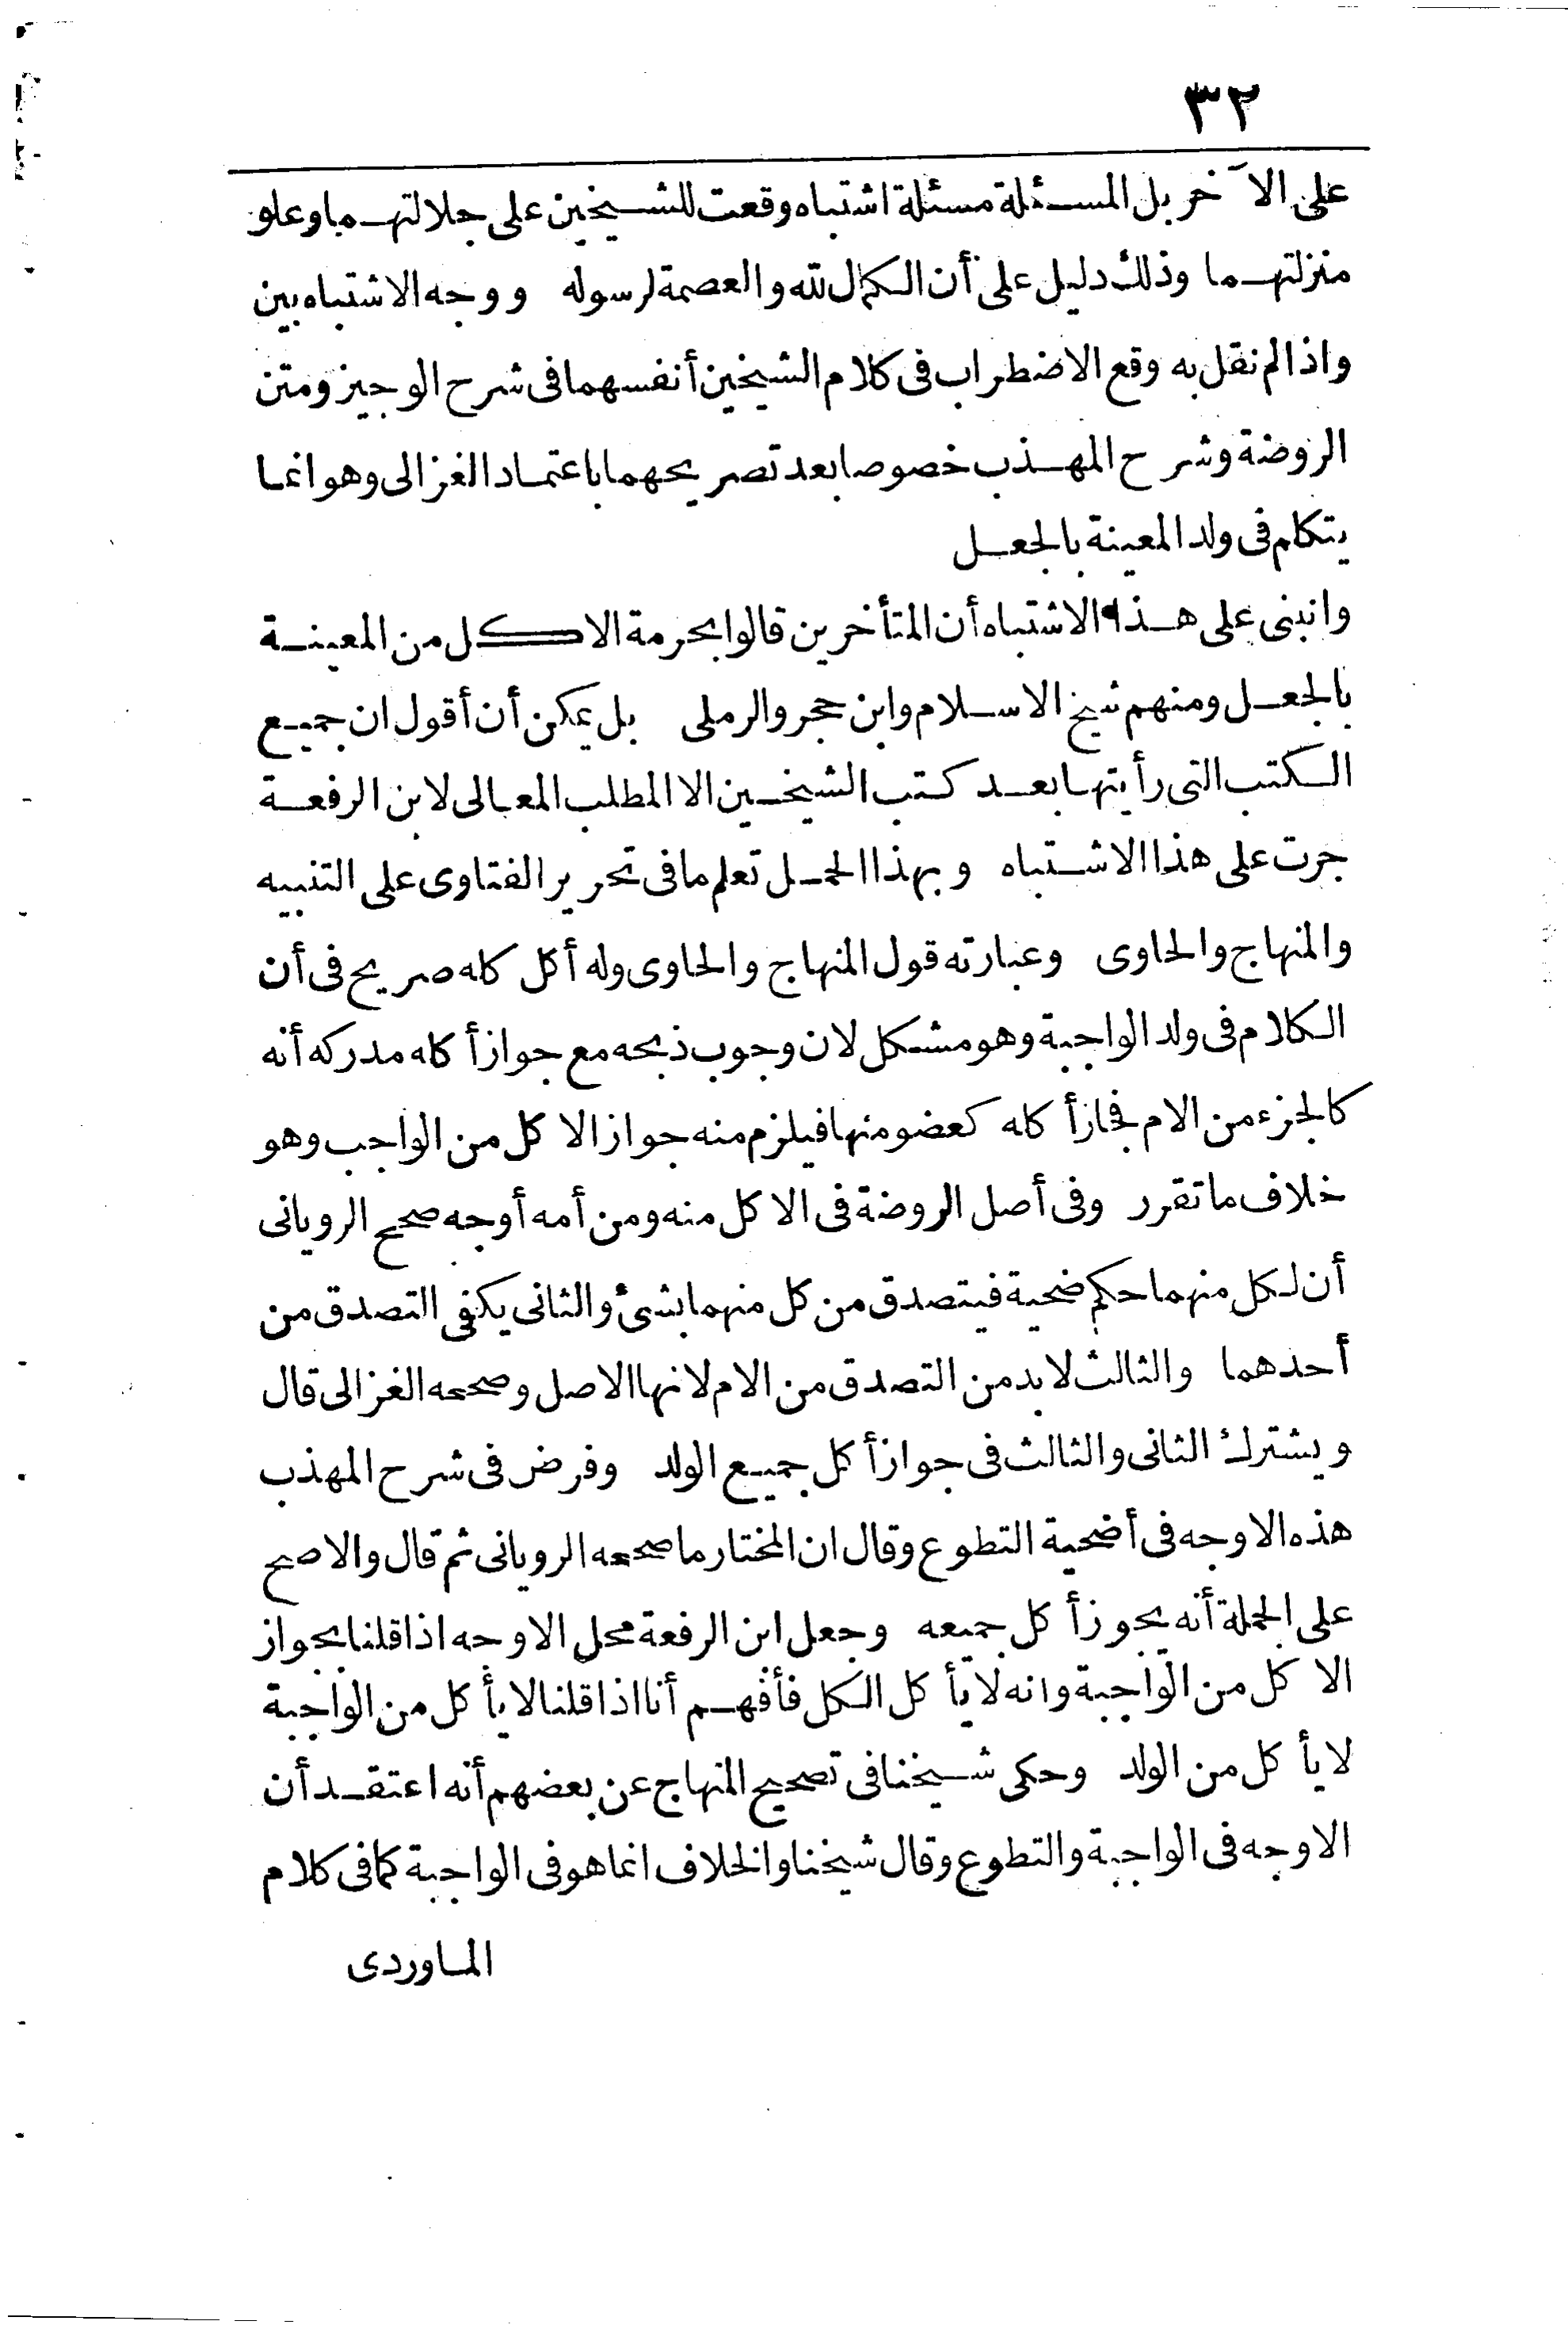 ٣٢
على الآخر بل المسئلة مسئلة اشتباه وقعت للشيخين على جلالتهما وعلو
منزلتهما وذلك دليل على أن الكمال لله والعصمة لرسوله ووجه الاشتباه بين
واذا لم نقل به وقع الاضطراب فى كلام الشيخين أنفسهما فى شرح الوجيز ومتن
الروضة وشرح المهذب خصوصا بعد تصريحهما باعتماد الغزالى وهو انما
يتكلم فى ولد المعينة بالجعل
وانبنى على هذا الاشتباه أن المتأخرين قالوا بحرمة الاكل من المعينة
بالجعل ومنهم شيخ الاسلام وابن حجر والرملى بل يمكن أن أقول ان جميع
الكتب التى رأيتها بعد كتب الشيخين الا المطلب المعالى لابن الرفعة
جرت على هذا الاشتباه وبهذا الحمل تعلم ما فى تحرير الفتاوى على التنبيه
والمنهاج والحاوى وعبارته قول المنهاج والحاوى وله أكل كله صريح فى أن
الكلام فى ولد الواجبة وهو مشكل لان وجوب ذبحه مع جواز أكله مدركه أنه
كالجزء من الام فجاز أكله كعضو منها فيلزم منه جواز الاكل من الواجب وهو
خلاف ما تقرر وفى أصل الروضة فى الاكل منه ومن أمه أوجه صحح الرويانى
أن لكل منهما حكم ضحية فيتصدق من كل منهما بشئ والثانى يكفى التصدق من
أحدهما والثالث لابد من التصدق من الام لانها الاصل وصححه الغزالى قال
ويشترك الثانى والثالث فى جواز أكل جميع الولد وفرض فى شرح المهذب
هذه الاوجه فى أضحية التطوع وقال ان المختار ما صححه الرويانى ثم قال والاصح
على الجملة أنه يجوز أكل جميعه وجعل ابن الرفعة محل الاوجه اذا قلنا بجواز
الاكل من الواجبة وانه لا يأكل الكل فأفهم أنا اذا قلنا لا يأكل من الواجبة
لا يأكل من الولد وحكى شيخنا فى تصحيح المنهاج عن بعضهم أنه اعتقد أن
الاوجه فى الواجبة والتطوع وقال شيخنا والخلاف انما هو فى الواجبة كما فى كلام
الماوردى